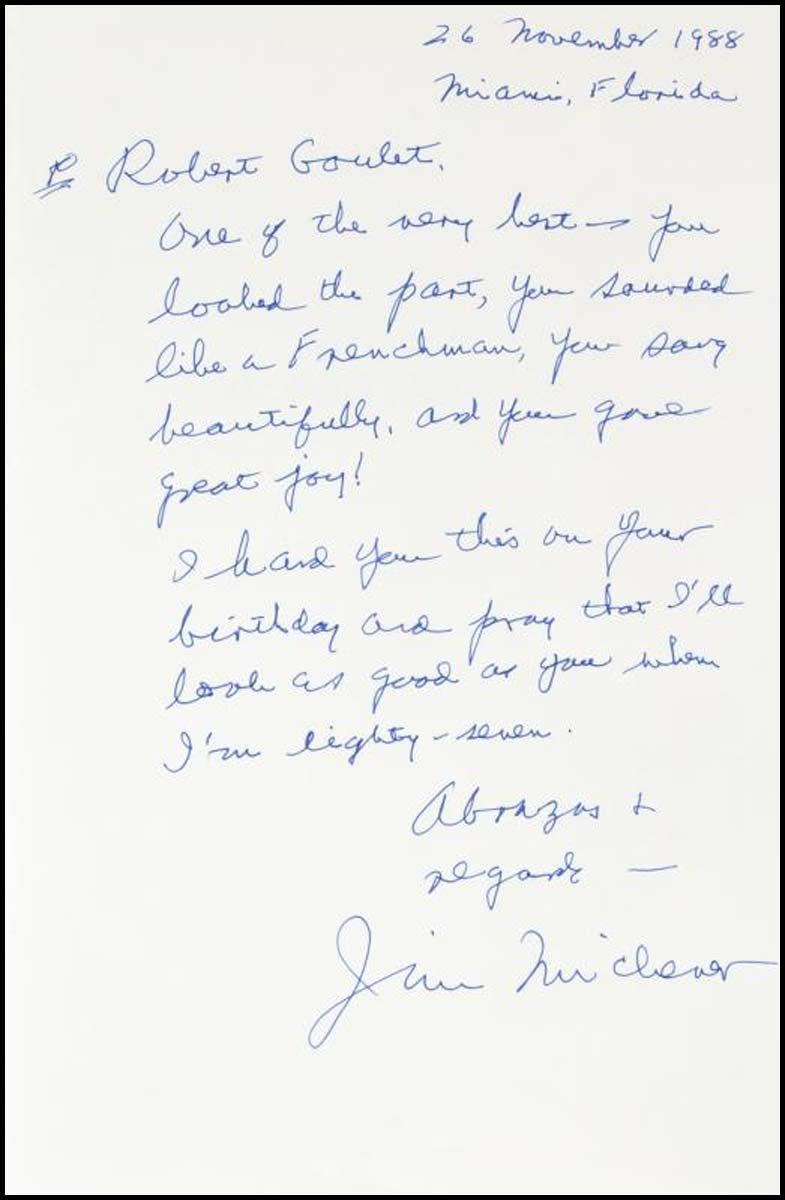 26 November 1988
Miami, Florida
Robert Goulet,
One of the very best — you
looked the part, you sounded
like a Frenchman, you sang
beautifully, and you gave
great joy!
I heard you this on your
birthday and pray that I'll
look as good as you when
I'm eighty-seven.
Abrazos +
regards —
Jim Michener